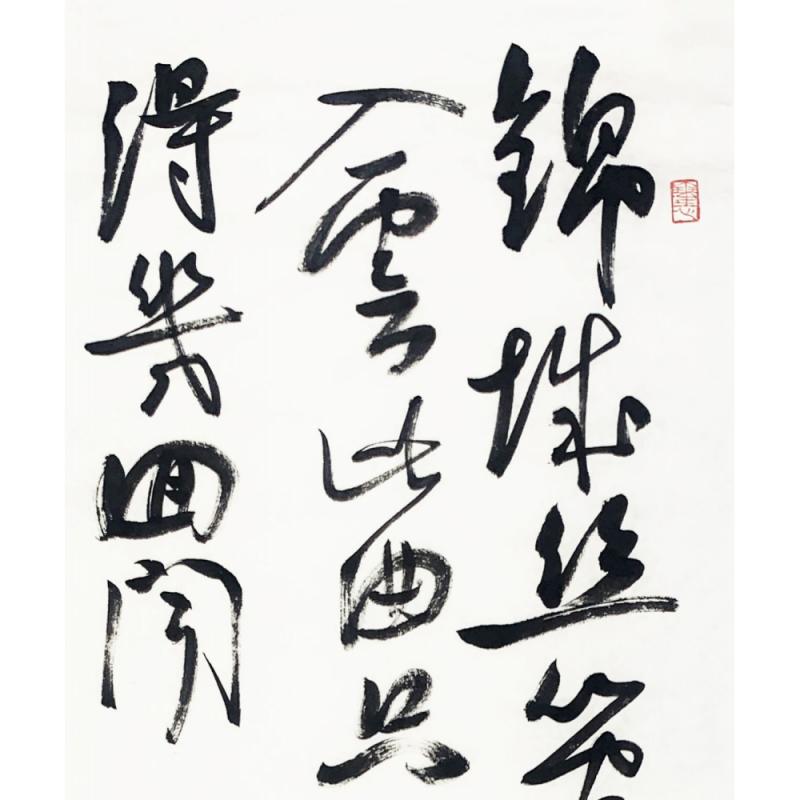 錦城丝管
入雲此曲只
得幾回聞